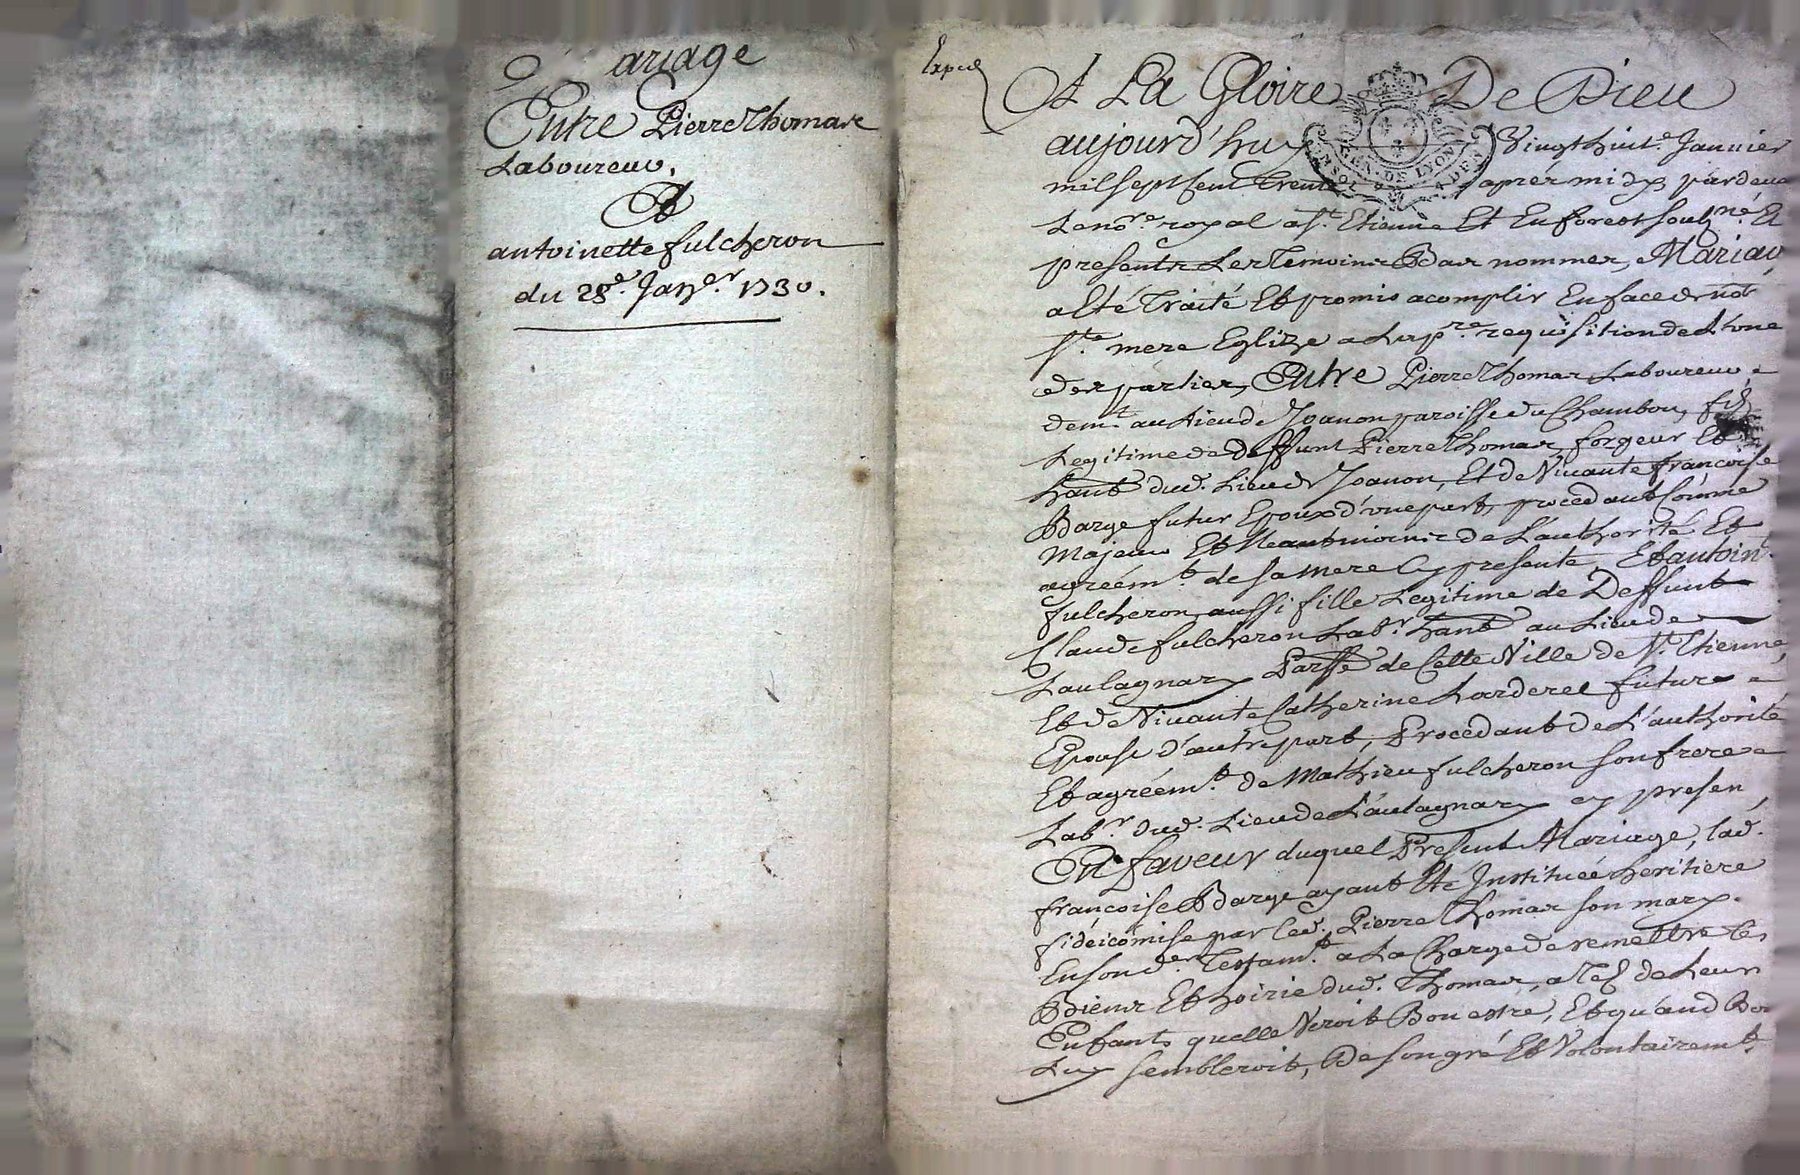 Mariage
Entre Pierre Thomas
Laboureur,
Et
antoinette fulcheron
du 28e. Janer. 1730.
Exped
A La Gloire De Dieu
aujourd'huy Vingt huite. Janvier
mil sept Cent Trente apres midy, pardevt
Le nore. royal a St. Etienne Et En forest soubne. Et
presents Les Temoins Bas nommes, Mariage
a Eté Traité Et promis acomplir En face de not
Ste. mere Eglize a La pre. requisition de L'une
des parties, Entre Pierre Thomas Laboureur
demt. au Lieu de Joanon paroisse du Chambon, fils
Legitime de deffunt Pierre Thomas forgeur Et
hant dud. Lieu de Joanon, Et de Vivante francoise
Barge futur Epoux d'une part, procedant Comme
Majeur Et Neantmoins de L'authorité Et
agréemt. de sa mere Cy presente, Et antointe
fulcheron aussi fille Legitime de Deffunt
Claude fulcheron Labr. hant au Lieu de
Laulagnar Parsse de Cette Ville de St. Etienne,
Et de Vivante Catherine Larderet future
Epouse d'autre part, Procedant de L'authorité
Et agréemt. de Mathieu fulcheron son frere
Labr. dud. Lieu de Laulagnar cy presen
En faveur duquel Present Mariage, lad.
francoise Barge ayant Eté Instituée heritiere
fidéicomise par led. Pierre Thomas son mary
En son der. Testamt. a La Charge de remettre les
Biens Et hoirie dud. Thomas, a Tel de Leurs
Enfants quelle Veroit Bon estre, Et quand Bon
Luy sembleroit, De son gré Et Volontairemt.
GEN. DE LYON